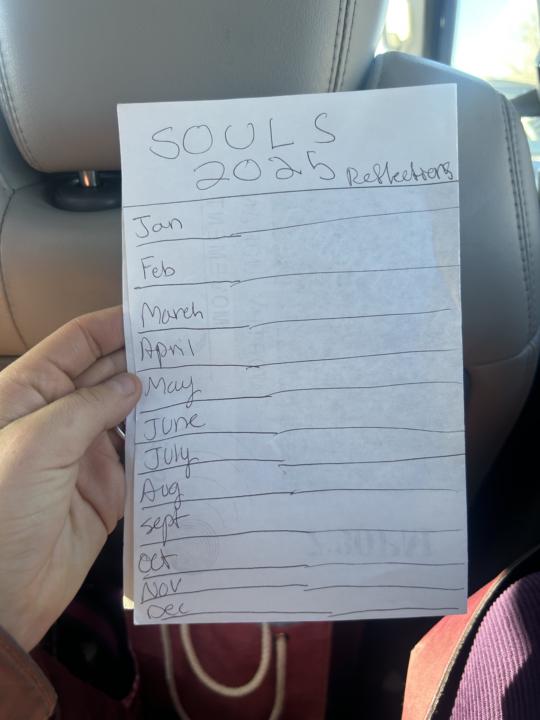 SOULS
2025 Reflections
Jan
Feb
March
April
May
June
July
Aug
Sept
Oct
Nov
Dec